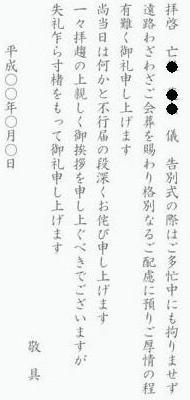 拝啓　亡●　●●　儀　告別式の際はご多忙中にも拘りませず
遠路わざわざご会葬を賜わり格別なるご配慮に預りご厚情の程
有難く御礼申し上げます
尚当日は何かと不行届の段深くお詫び申し上げます
一々拝趨の上親しく御挨拶を申し上ぐべきでございますが
失礼乍ら寸楮をもって御礼申し上げます
敬具
平成〇〇年〇月〇日